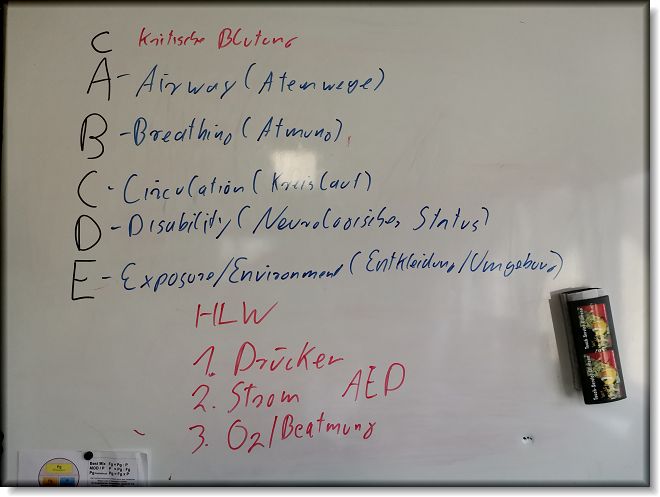 C Kritische Blutung
A - Airway (Atemwege)
B - Breathing (Atmung)
C - Circulation (Kreislauf)
D - Disability (Neurologischer Status)
E - Exposure/Environment (Entkleidung/Umgebung)
HLW
1. Drücker
2. Strom AED
3. O2/Beatmung
Best Mix